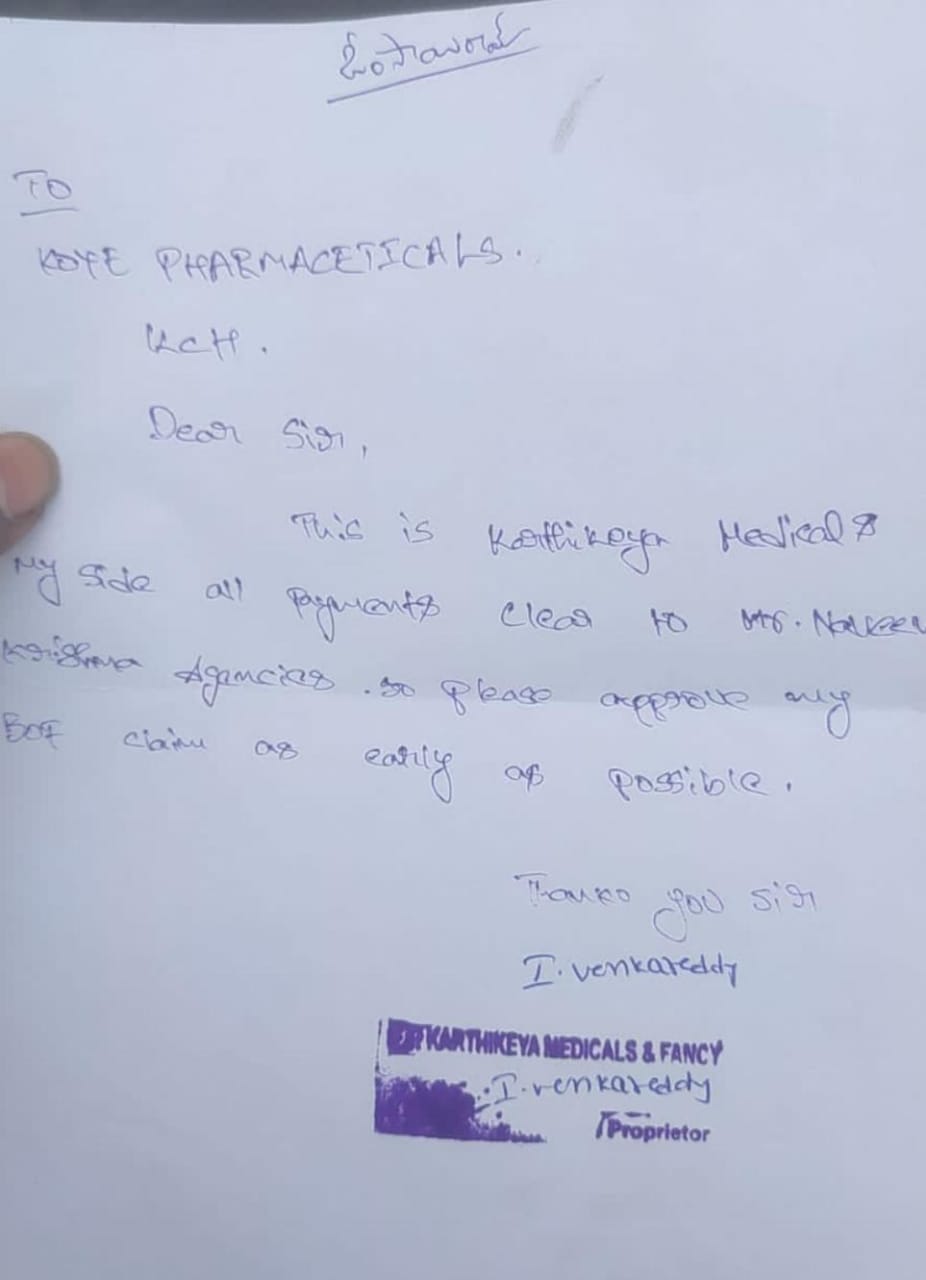 ఓం సాయిరామ్
TO
KOYE PHARMACETICALS.
KCH.
Dear Sir,
This is Karthikeya Medicals
My side all payments clear to M/s. Naveen
Krishna Agencies. so please approve my
BOE claim as early as possible.
Thanko you sir
I. venkareddy
KARTHIKEYA MEDICALS & FANCY
I. venkareddy
Proprietor